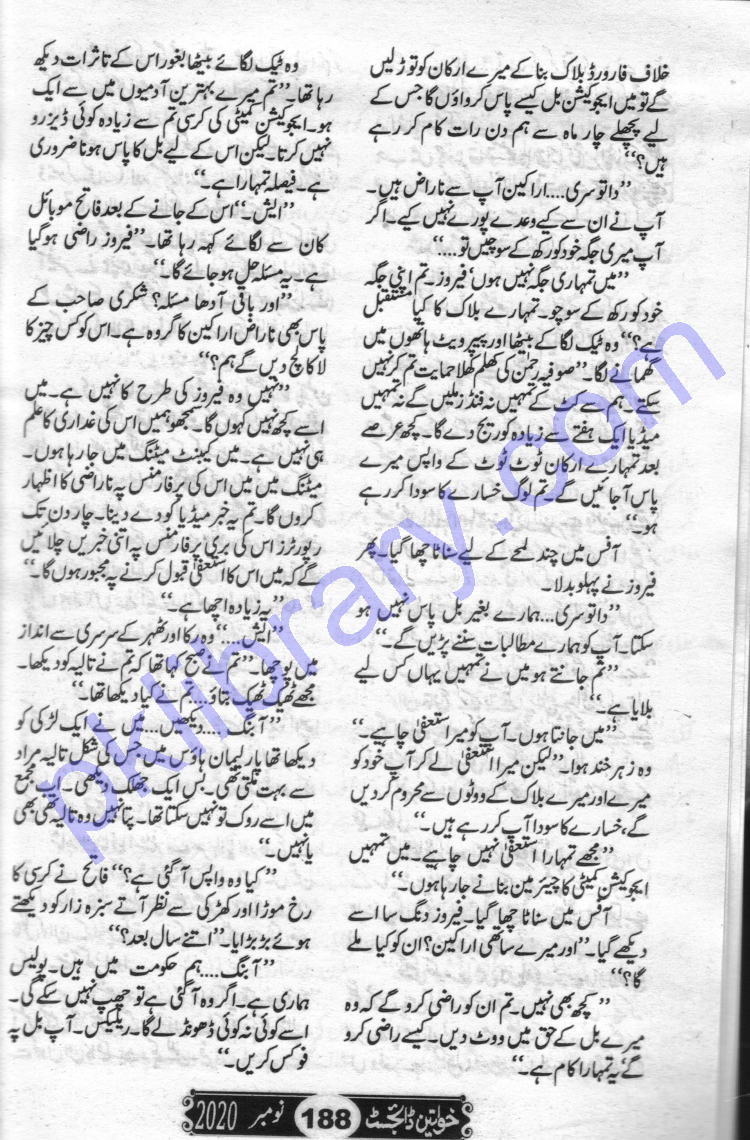 خلاف فارورڈ بلاک بنا کے میرے ارکان کو توڑ لیں
گے تو میں ایجوکیشن بل کیسے پاس کرواؤں گا جس کے
لیے پچھلے چار ماہ سے ہم دن رات کام کر رہے
ہیں؟“
”داتو سری.... اراکین آپ سے ناراض ہیں۔
آپ نے ان سے کیے وعدے پورے نہیں کیے۔ اگر
آپ میری جگہ خود کو رکھ کے سوچیں تو....“
”میں تمہاری جگہ نہیں ہوں‘ فیروز۔ تم اپنی جگہ
خود کو رکھ کے سوچو۔ تمہارے بلاک کا کیا مستقبل
ہے؟“ وہ ٹیک لگا کے بیٹھا اور پیپر ویٹ ہاتھوں میں
گھمانے لگا۔ ”صوفیہ رحمن کی کھلم کھلا حمایت تم کر نہیں
سکتے۔ ہم سے کٹ کے تمہیں نہ فنڈز ملیں گے نہ تمہیں
میڈیا ایک ہفتے سے زیادہ کوریج دے گا۔ کچھ عرصے
بعد تمہارے ارکان ٹوٹ ٹوٹ کے واپس میرے
پاس آ جائیں گے۔ تم لوگ خسارے کا سودا کر رہے
ہو۔“
آفس میں چند لمحے کے لیے سناٹا چھا گیا۔ پھر
فیروز نے پہلو بدلا۔
”داتو سری.... ہمارے بغیر بل پاس نہیں ہو
سکتا۔ آپ کو ہمارے مطالبات سننے پڑیں گے۔“
”تم جانتے ہو میں نے تمہیں یہاں کس لیے
بلایا ہے۔“
”میں جانتا ہوں۔ آپ کو میرا استعفیٰ چاہیے۔“
وہ زہر خند ہوا۔ ”لیکن میرا استعفیٰ لے کر آپ خود کو
میرے اور میرے بلاک کے ووٹوں سے محروم کر دیں
گے، خسارے کا سودا آپ کر رہے ہیں۔“
”مجھے تمہارا استعفیٰ نہیں چاہیے۔ میں تمہیں
ایجوکیشن کمیٹی کا چیئرمین بنانے جا رہا ہوں۔“
آفس میں سناٹا چھا گیا۔ فیروز دنگ سا اسے
دیکھے گیا۔ ”اور میرے ساتھی اراکین؟ ان کو کیا ملے
گا؟“
”کچھ بھی نہیں۔ تم ان کو راضی کرو گے کہ وہ
میرے بل کے حق میں ووٹ دیں۔ کیسے راضی کرو
گے‘ یہ تمہارا کام ہے۔“
وہ ٹیک لگائے بیٹھا بغور اس کے تاثرات دیکھ
رہا تھا۔ ”تم میرے بہترین آدمیوں میں سے ایک
ہو۔ ایجوکیشن کمیٹی کی کرسی تم سے زیادہ کوئی ڈیزرو
نہیں کرتا۔ لیکن اس کے لیے بل کا پاس ہونا ضروری
ہے۔ فیصلہ تمہارا ہے۔“
”ایش۔“ اس کے جانے کے بعد فاتح موبائل
کان سے لگائے کہہ رہا تھا۔ ”فیروز راضی ہو گیا
ہے۔ یہ مسئلہ حل ہو جائے گا۔“
”اور باقی آدھا مسئلہ؟ شکری صاحب کے
پاس بھی ناراض اراکین کا گروہ ہے۔ اس کو کس چیز کا
لالچ دیں گے ہم؟“
”نہیں وہ فیروز کی طرح کا نہیں ہے۔ میں
اسے کچھ نہیں کہوں گا۔ سمجھو ہمیں اس کی غداری کا علم
ہی نہیں ہے۔ میں کیبنٹ میٹنگ میں جا رہا ہوں۔
میٹنگ میں میں اس کی پرفارمنس پہ ناراضی کا اظہار
کروں گا۔ تم یہ خبر میڈیا کو دے دینا۔ چار دن تک
رپورٹرز اس کی بری پرفارمنس پہ اتنی خبریں چلائیں
گے کہ میں اس کا استعفیٰ قبول کرنے پہ مجبور ہوں گا۔“
”یہ زیادہ اچھا ہے۔“
”ایش....“ وہ رکا اور ٹھہر کے سرسری سے انداز
میں پوچھا۔ ”تم نے صبح کہا تھا کہ تم نے تالیہ کو دیکھا۔
مجھے ٹھیک ٹھیک بتاؤ.... تم نے کیا دیکھا تھا۔“
”آبنگ.... دیکھیں.... میں نے ایک لڑکی کو
دیکھا تھا پارلیمان ہاؤس میں جس کی شکل تالیہ مراد
سے بہت ملتی تھی۔ بس ایک جھلک دیکھی۔ ایسے مجمع
میں اسے روک تو نہیں سکتا تھا۔ پتا نہیں وہ تالیہ تھی بھی
یا نہیں۔“
”کیا وہ واپس آ گئی ہے؟“ فاتح نے کرسی کا
رخ موڑا اور کھڑکی سے نظر آتے سبزہ زار کو دیکھتے
ہوئے بڑبڑایا۔ ”اتنے سال بعد؟“
”آبنگ.... ہم حکومت میں ہیں۔ پولیس
ہماری ہے۔ اگر وہ آ گئی ہے تو چھپ نہیں سکے گی۔
اسے کوئی نہ کوئی ڈھونڈ لے گا۔ ریلیکس۔ آپ بل پہ
فوکس کریں۔“
خواتین ڈائجسٹ 188 نومبر 2020
pklibrary.com